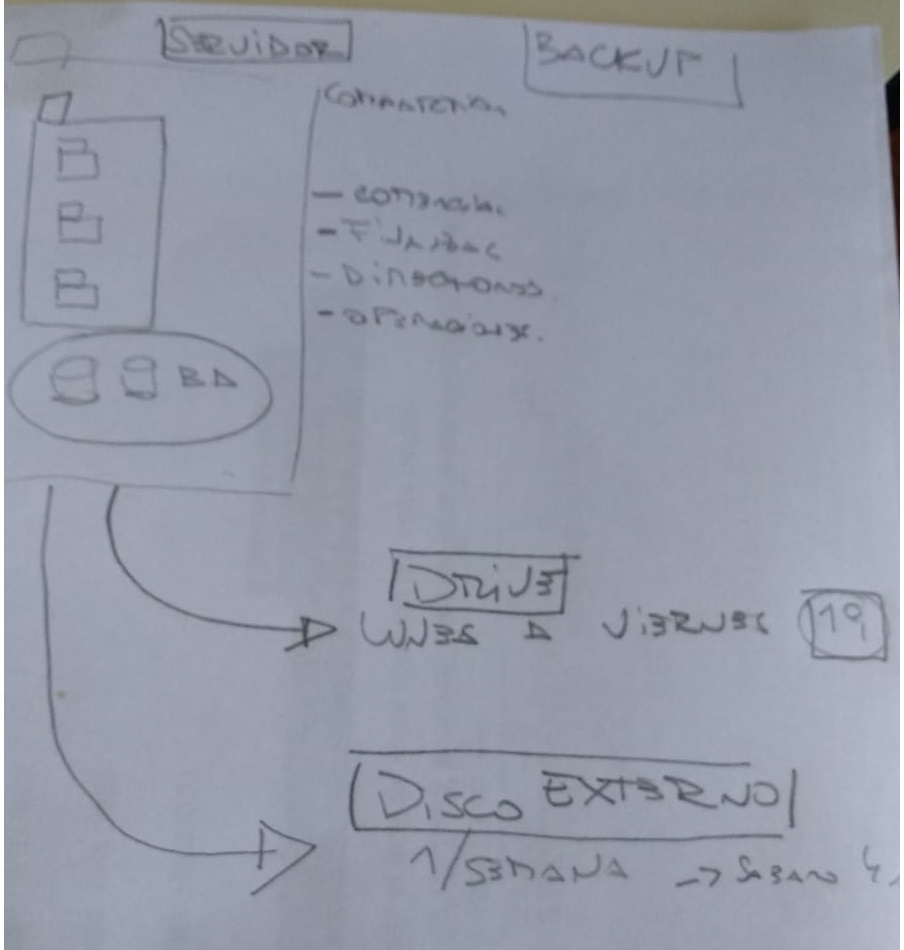 SERVIDOR
BACKUP
- COMERCIAL
- DIRECTORES
- OPERACIONES.
BD
DRIVE
LUNES A VIERNES 19
DISCO EXTERNO
1/SEMANA -> SABADO